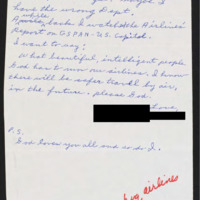 have the wrong Dept.
A while back I watched the Airlines'
Report on CSPAN - U.S. Capitol.
I want to say:
What beautiful, intelligent people
God has to run our airlines. I know
there will be safer travel by air,
in the future, please God.
Love,
P.S.
God loves you all and so do I.
airlines